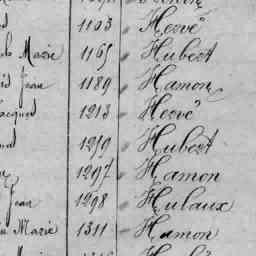 1103 Hervé
Marie 1165 Hubert
Jean 1189 Hamon
1213 Hervé
1259 Hubert
1297 Hamon
Jean 1298 Hulaux
Marie 1311 Hamon